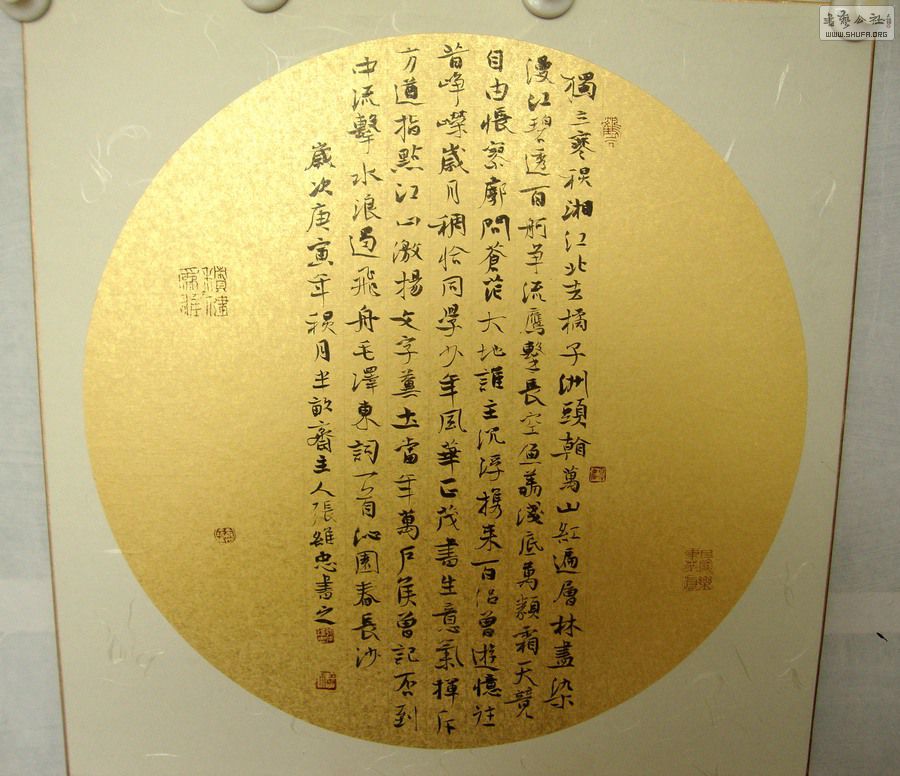 獨立寒秋湘江北去橘子洲頭看萬山紅遍層林盡染
漫江碧透百舸争流鷹擊長空魚翔淺底萬類霜天競
自由悵寥廓問蒼茫大地誰主沉浮携來百侣曾遊憶往
昔崢嶸歲月稠恰同學少年風華正茂書生意氣揮斥
方遒指點江山激揚文字糞土當年萬户侯曾記否到
中流擊水浪遏飛舟毛澤東詞一首沁園春長沙
歲次庚寅年秋月半畝齋主人張維忠書之
書藝公社
WWW.SHUFA.ORG